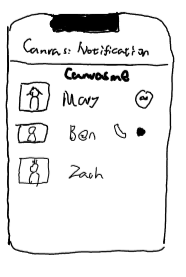 Canvas: Notification
Canvasme
Mary
Ben
Zach